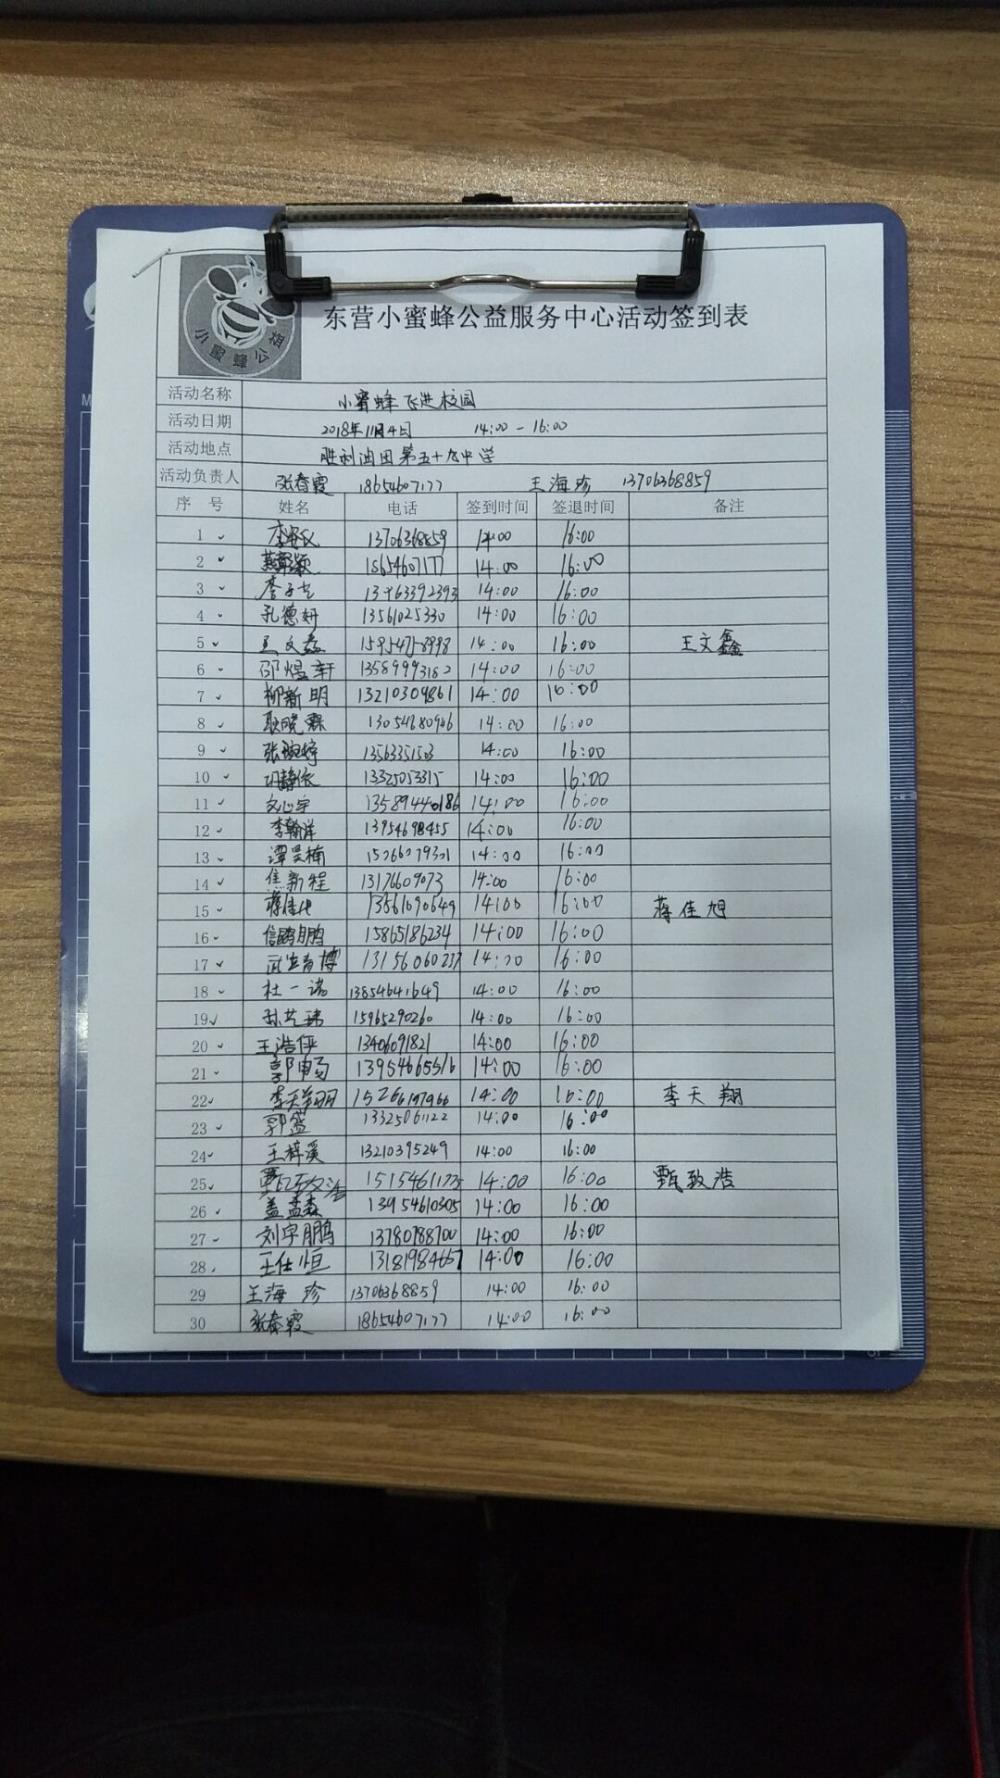 小蜜蜂公益
东营小蜜蜂公益服务中心活动签到表
活动名称 小蜜蜂飞进校园
活动日期 2018年11月4日 14:00-16:00
活动地点 胜利油田第五十九中学
活动负责人 张春霞 18654607177 王海珍 13706368859
序号 姓名 电话 签到时间 签退时间 备注
1 13706368859 14:00 16:00
2 18654607177 14:00 16:00
3 14:00 16:00
4 孔德妍 13561025330 14:00 16:00
5 王文鑫 14:00 16:00 王文鑫
6 邵煜轩 14:00 16:00
7 柳新明 13210309861 14:00 16:00
8 耿晓霖 13054680946 14:00 16:00
9 14:00 16:00
10 13325053315 14:00 16:00
11 文心宇 13589440186 14:00 16:00
12 李翰洋 13954698455 14:00 16:00
13 谭昊楠 14:00 16:00
14 焦新程 13176609073 14:00 16:00
15 蒋佳旭 13561090649 14:00 16:00 蒋佳旭
16 信鹏鹏 15865186234 14:00 16:00
17 14:00 16:00
18 杜一诺 13854641649 14:00 16:00
19 15965290260 14:00 16:00
20 王浩伊 13406091821 14:00 16:00
21 13954665516 14:00 16:00
22 李天翔 14:00 16:00 李天翔
23 郭盛 13325061122 14:00 16:00
24 王梓溪 13210395249 14:00 16:00
25 甄致浩 14:00 16:00 甄致浩
26 盖孟森 13954610305 14:00 16:00
27 刘宇鹏 13780788700 14:00 16:00
28 王仕恒 13181984657 14:00 16:00
29 王海珍 13706368859 14:00 16:00
30 张春霞 18654607177 14:00 16:00